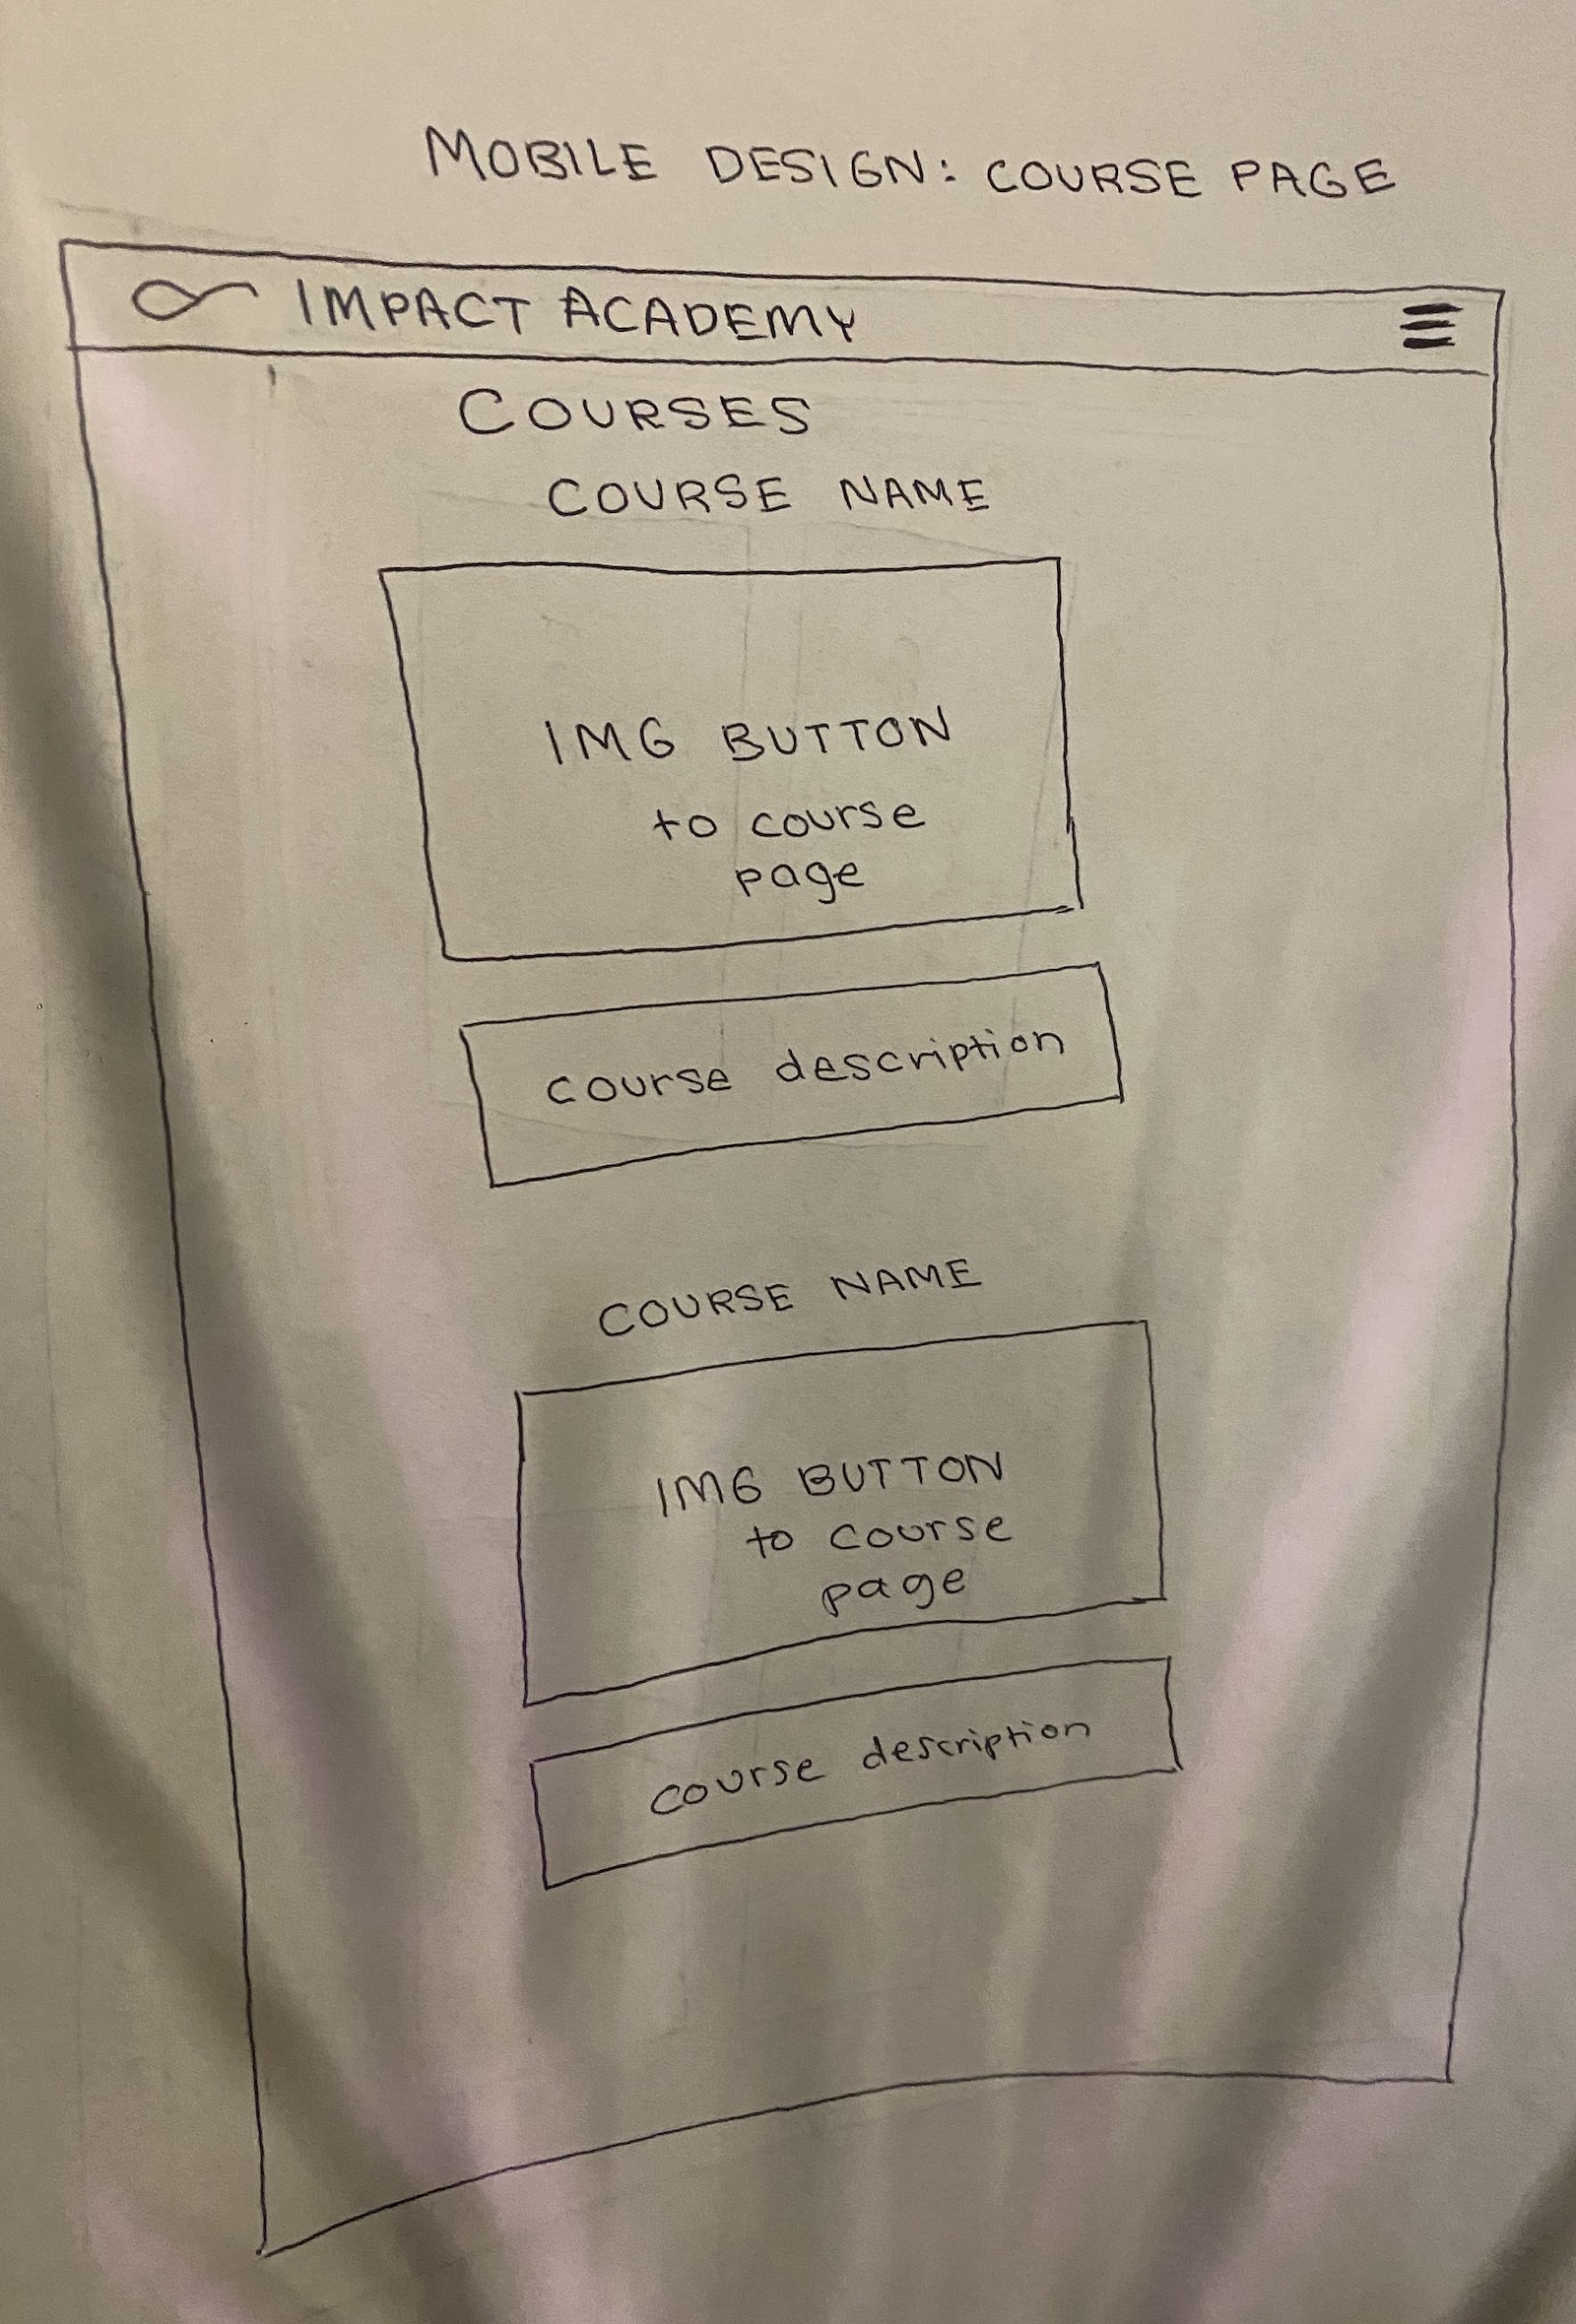 MOBILE DESIGN: COURSE PAGE
IMPACT ACADEMY
COURSES
COURSE NAME
IMG BUTTON
to course
page
course description
COURSE NAME
IMG BUTTON
to course
page
course description